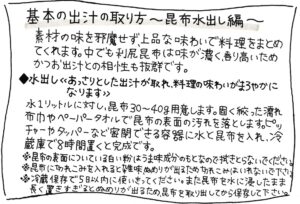 基本の出汁の取り方～昆布水出し編～
素材の味を邪魔せず上品な味わいで料理をまとめ
てくれます。中でも利尻昆布は味が濃く、香り高いため
かつお出汁との相性も抜群です。
●水出し<<あっさりとした出汁が取れ、料理の味わいがまろやかに
なります>>
水1リットルに対し、昆布30～40g用意します。固く絞った濡れ
布巾やペーパータオルで昆布の表面の汚れを落とします。ピッ
チャーやタッパーなど密閉できる容器に水と昆布を入れ、冷
蔵庫で8時間置くと完成です。
※昆布の表面についている白い粉はうま味成分のもとなので拭きとらないでください。
※昆布に切れこみを入れると雑味やぬめりが出るため切れこみはいれないで下さい。
※冷蔵保存で5日以内に使いきってください。また昆布を水に浸したまま
長く置きすぎるとぬめりが出るため昆布を取り出してから保存して下さい。